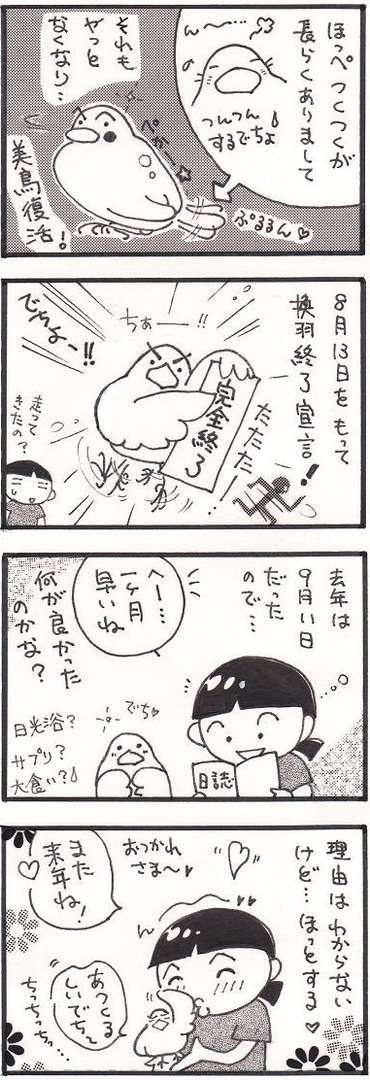 ほっぺつくつくが
長らくありまして
ん～～…
の
つんつん
するでちょ
それも
やっと
なくなり…
ぺかーっ
美鳥復活！
ぷるるん♡
8月13日をもって
換羽終了宣言！
ちぁ——!!
でちよー!!
完全終了
たたた…
走って
きたの？
去年は
9月11日
だった
ので…
へー…
一ヶ月
早いね
何が良かった
のかな？
日光浴？
サプリ？
大食い？
でち♡
日誌
理由はわからない
けど…ほっとする♡
おつかれ
さま～♥
また
来年ね！
♡
ん
あつくる
しいでちっ
ちっちっちっ…